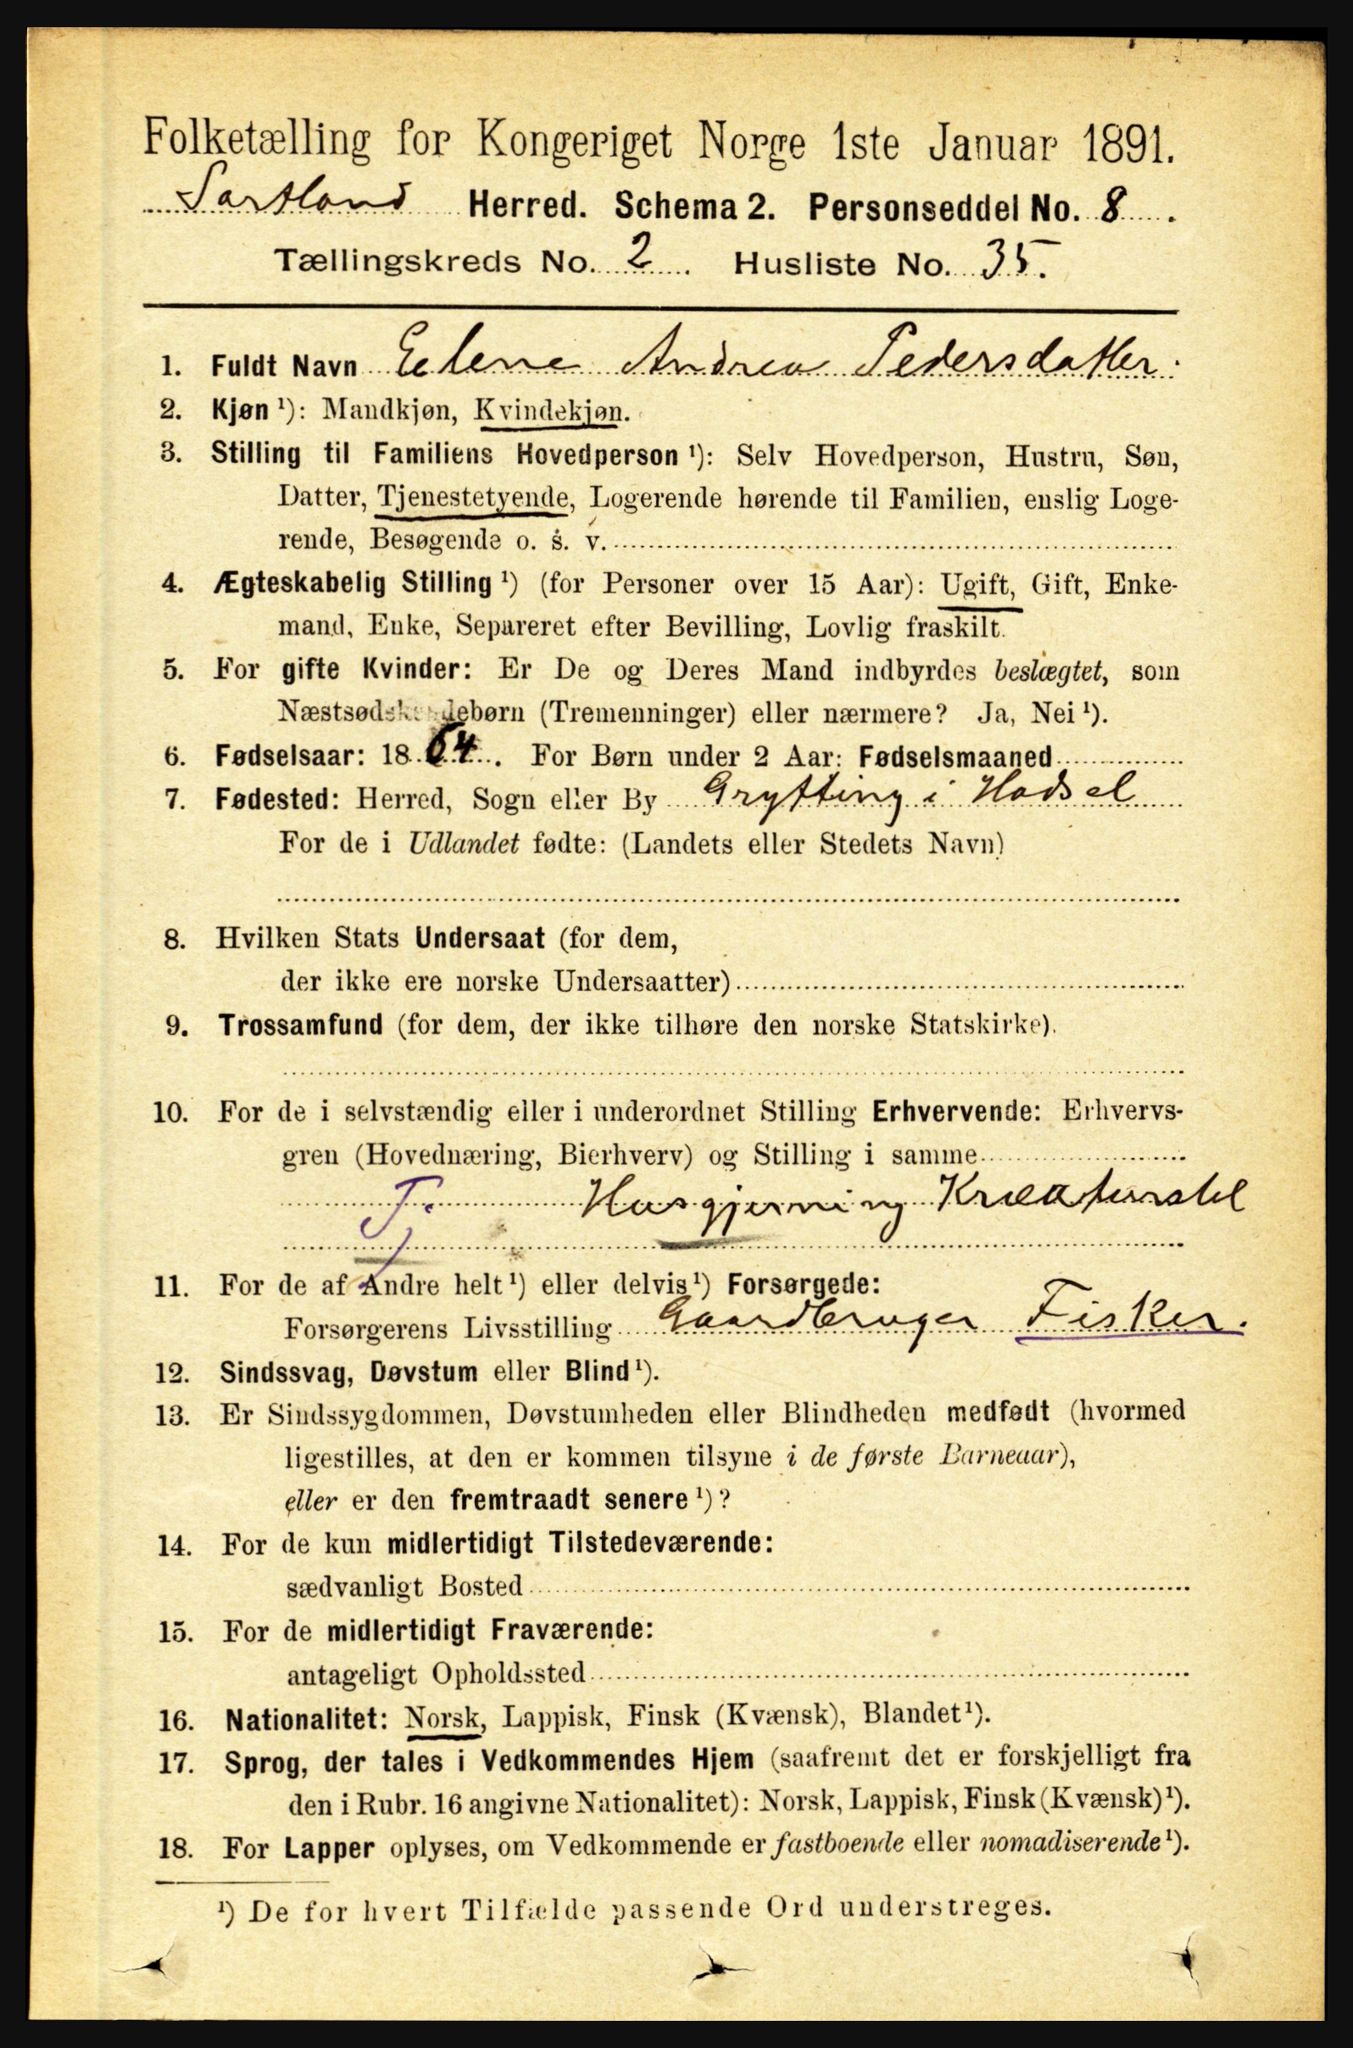 Folketælling for Kongeriget Norge 1ste Januar 1891.
Sortland Herred. Schema 2. Personseddel No. 8.
Tællingskreds No. 2. Husliste No. 35.
1. Fuldt Navn Elene Andrea Pedersdatter.
2. Kjøn ¹): Mandkjøn, Kvindekjøn.
3. Stilling til Familiens Hovedperson ¹): Selv Hovedperson, Hustru, Søn,
Datter, Tjenestetyende, Logerende hørende til Familien, enslig Loge-
rende, Besøgende o. s. v.
4. Ægteskabelig Stilling ¹) (for Personer over 15 Aar): Ugift, Gift, Enke-
mand, Enke, Separeret efter Bevilling, Lovlig fraskilt.
5. For gifte Kvinder: Er De og Deres Mand indbyrdes beslægtet, som
Næstsødskendebørn (Tremenninger) eller nærmere? Ja, Nei ¹).
6. Fødselsaar: 1864. For Børn under 2 Aar: Fødselsmaaned
7. Fødested: Herred, Sogn eller By Grytting i Hadsel
For de i Udlandet fødte: (Landets eller Stedets Navn)
8. Hvilken Stats Undersaat (for dem,
der ikke ere norske Undersaatter)
9. Trossamfund (for dem, der ikke tilhøre den norske Statskirke).
10. For de i selvstændig eller i underordnet Stilling Erhvervende: Erhvervs-
gren (Hovednæring, Bierhverv) og Stilling i samme
Tj Husgjerning Kreaturstel
11. For de af Andre helt ¹) eller delvis ¹) Forsørgede:
Forsørgerens Livsstilling Gaardbruger Fisker.
12. Sindssvag, Døvstum eller Blind ¹).
13. Er Sindssygdommen, Døvstumheden eller Blindheden medfødt (hvormed
ligestilles, at den er kommen tilsyne i de første Barneaar),
eller er den fremtraadt senere ¹)?
14. For de kun midlertidigt Tilstedeværende:
sædvanligt Bosted
15. For de midlertidigt Fraværende:
antageligt Opholdssted
16. Nationalitet: Norsk, Lappisk, Finsk (Kvænsk), Blandet ¹).
17. Sprog, der tales i Vedkommendes Hjem (saafremt det er forskjelligt fra
den i Rubr. 16 angivne Nationalitet): Norsk, Lappisk, Finsk (Kvænsk) ¹).
18. For Lapper oplyses, om Vedkommende er fastboende eller nomadiserende ¹).
¹) De for hvert Tilfælde passende Ord understreges.